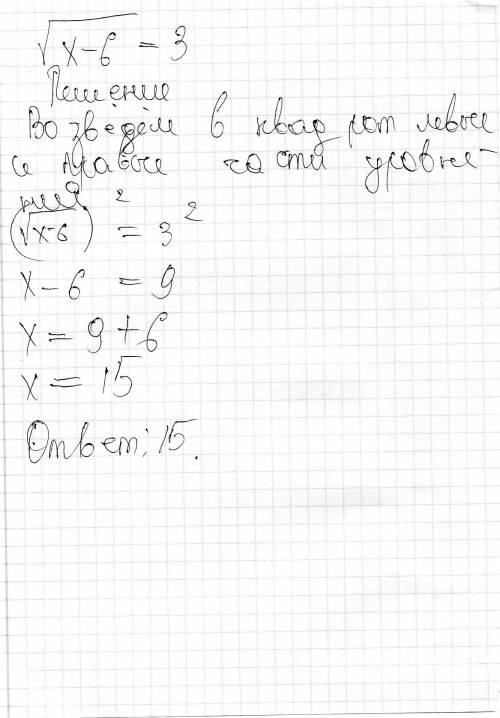 √x-6 = 3
Решение
Возведём в квадрат левые
и правые части уравне-
ния
(√x-6)² = 3²
x - 6 = 9
x = 9 + 6
x = 15
Ответ: 15.